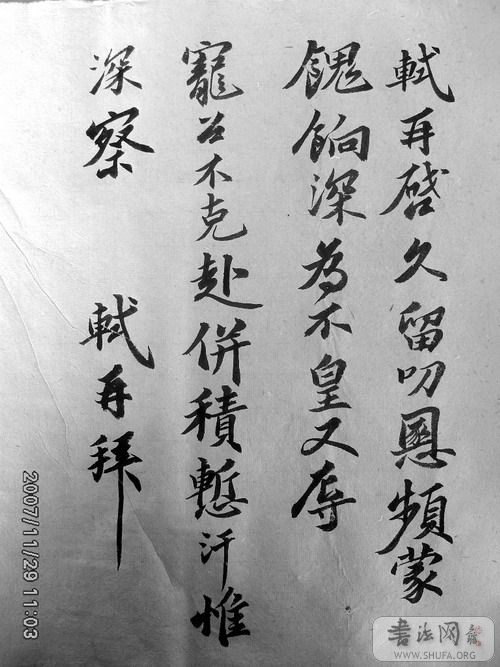 軾再啓久留叨恩頻蒙
餽餉深為不皇又辱
寵召不克赴併積慙汗惟
深察 軾再拜
2007/11/29 11:03
書法网
WWW.SHUFA.ORG